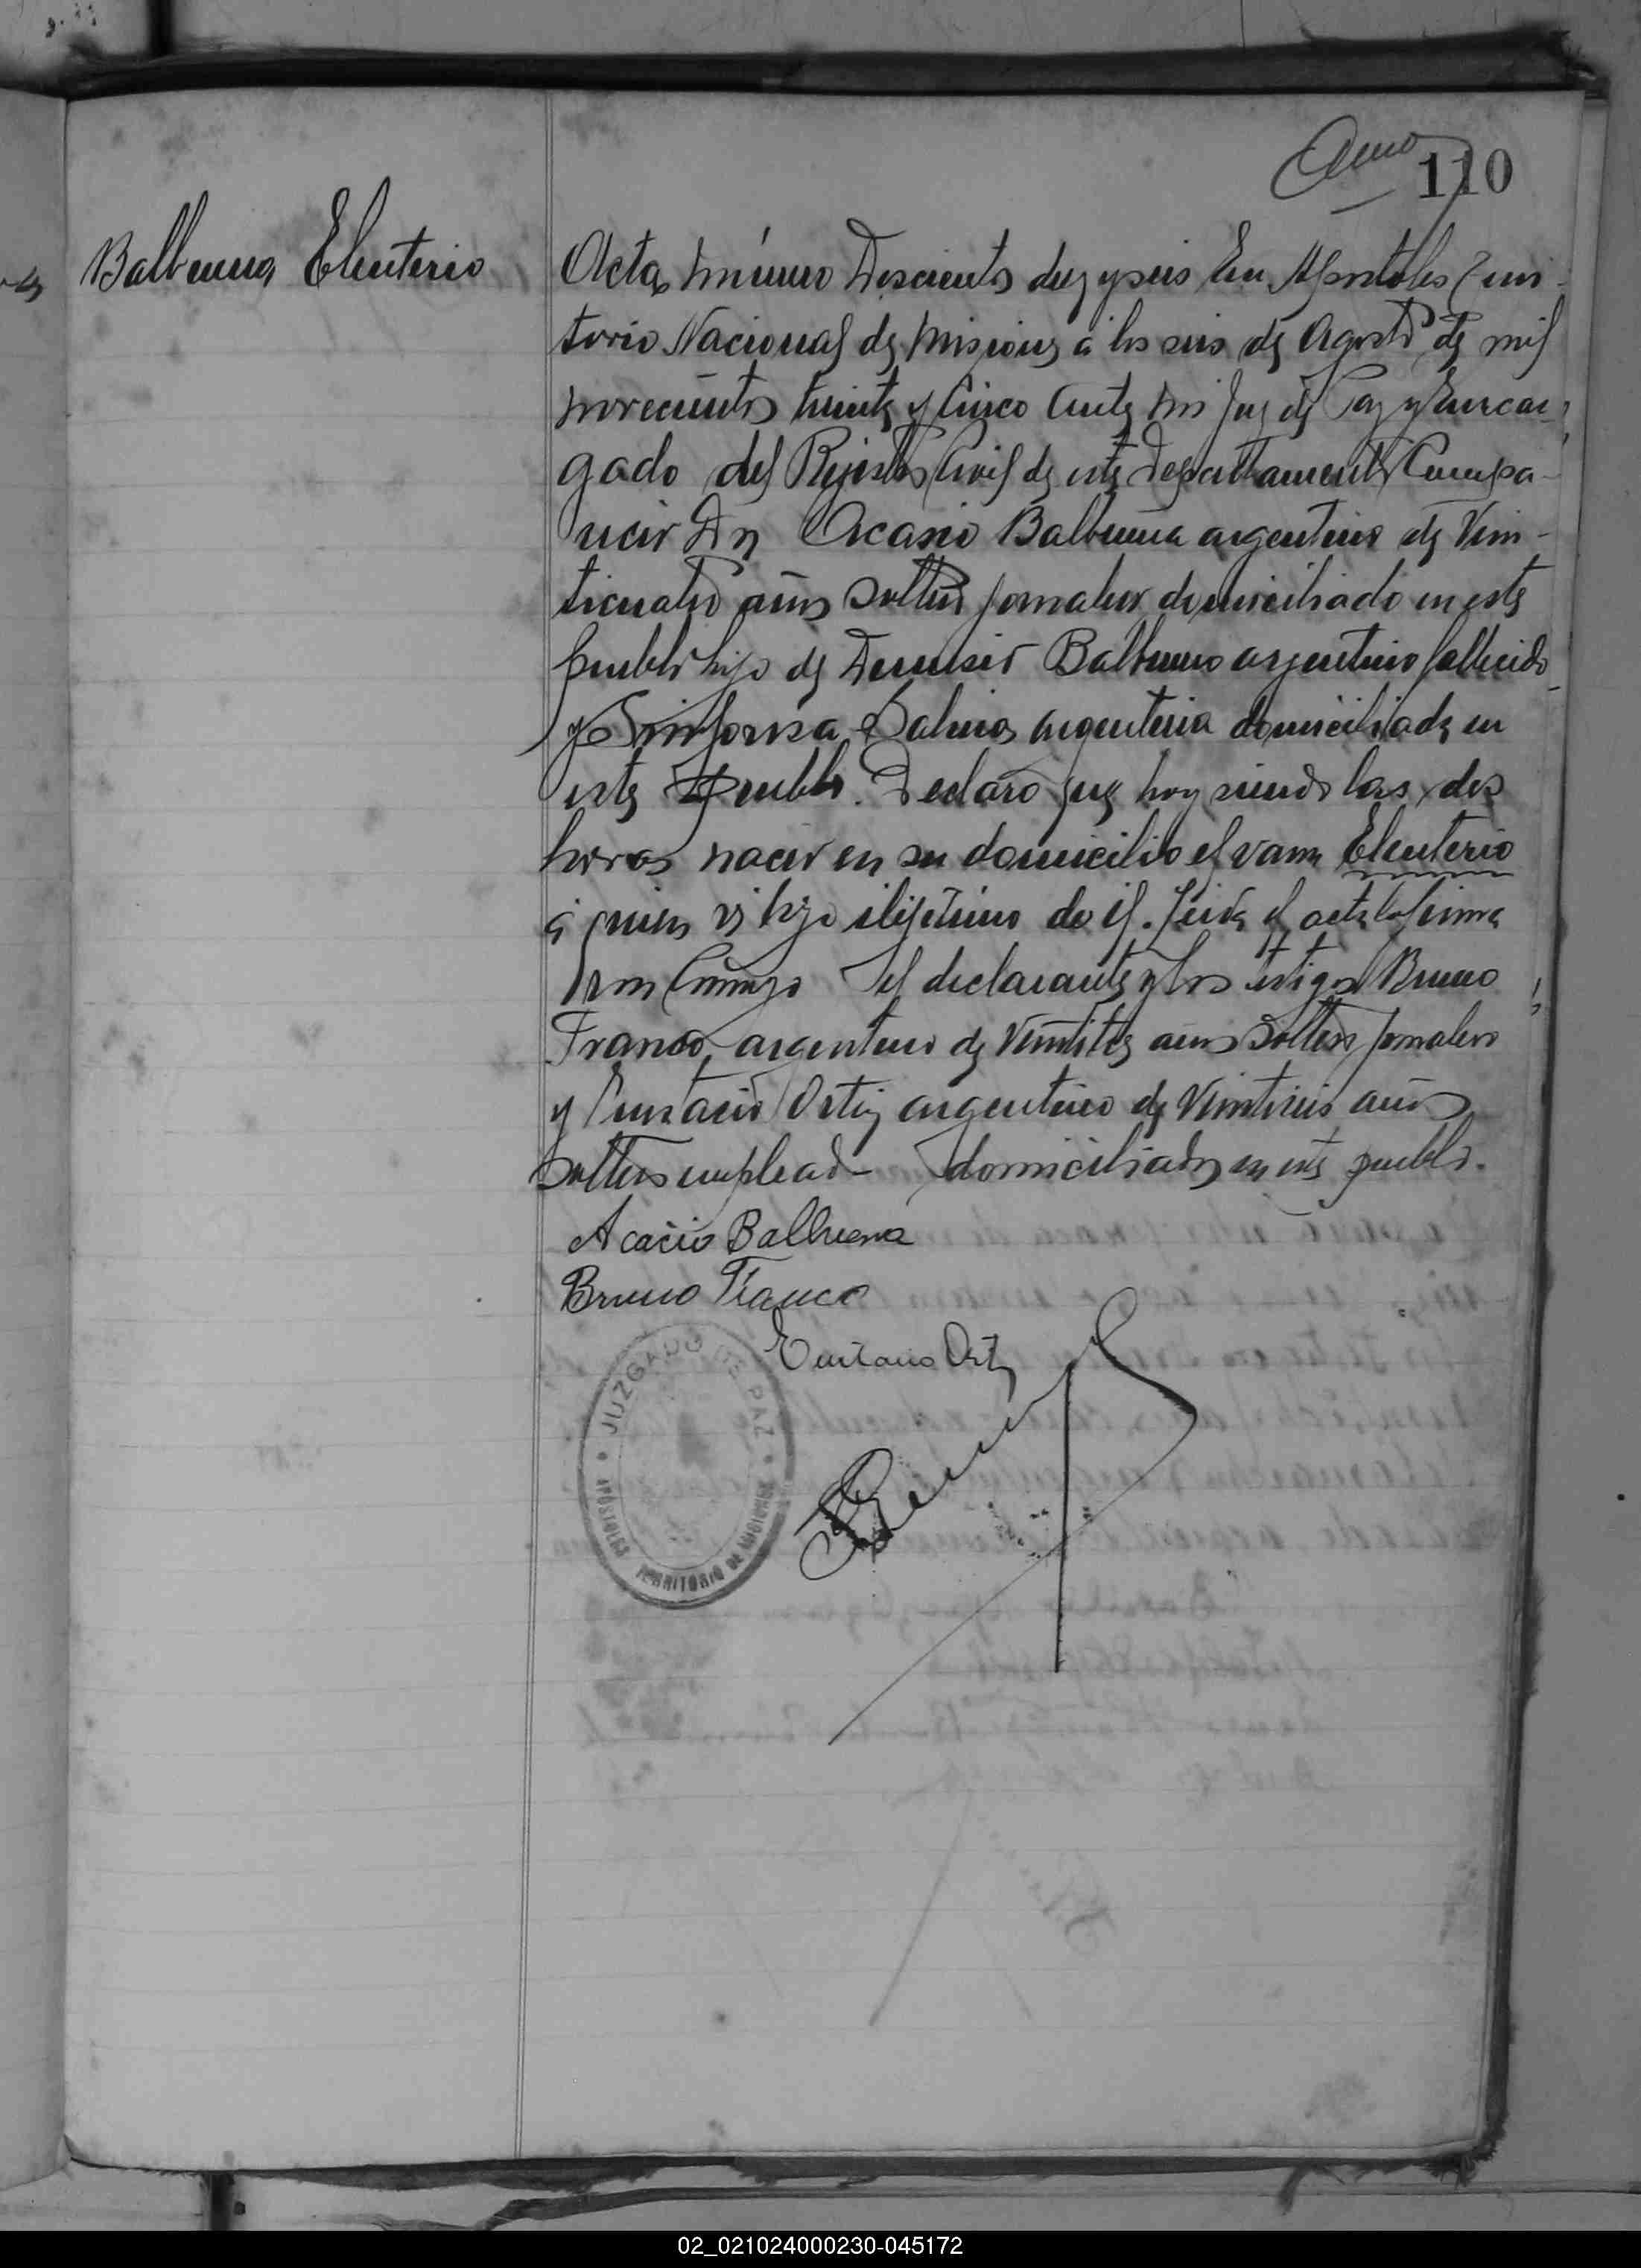 110
Balbuena Eleuterio
Acta número Doscientos diez y seis En Apostoles Terri-
torio Nacional de Misiones á los seis de Agosto de mil
novecientos treinta y Cinco Ante mi Juez de Paz y Encar-
gado del Rejistro Civil de este Departamento Compa-
recio Dn Acasio Balbuena argentino de Vein-
ticuatro años Soltero Jornalero domiciliado en este
pueblo hijo de Balbueno argentino fallecido
y Sinforosa argentina domiciliada en
este Pueblo. Declaro que hoy siendo las dos
horas nacio en su domicilio el varon Eleuterio
á quien hijo ilijetimo de el. Leida el acta la firma
Con migo el declarante y los testigos Bruno
Franco, argentino de Veintitres años Soltero Jornalero
y Eustacio Ortiz argentino de Veintiseis años
soltero empleado domiciliados en este pueblo.
Acacio Balbuena
Bruno Franco
Eustacio Ortiz
JUZGADO DE PAZ
APOSTOLES TERRITORIO DE MISIONES
02_021024000230-045172